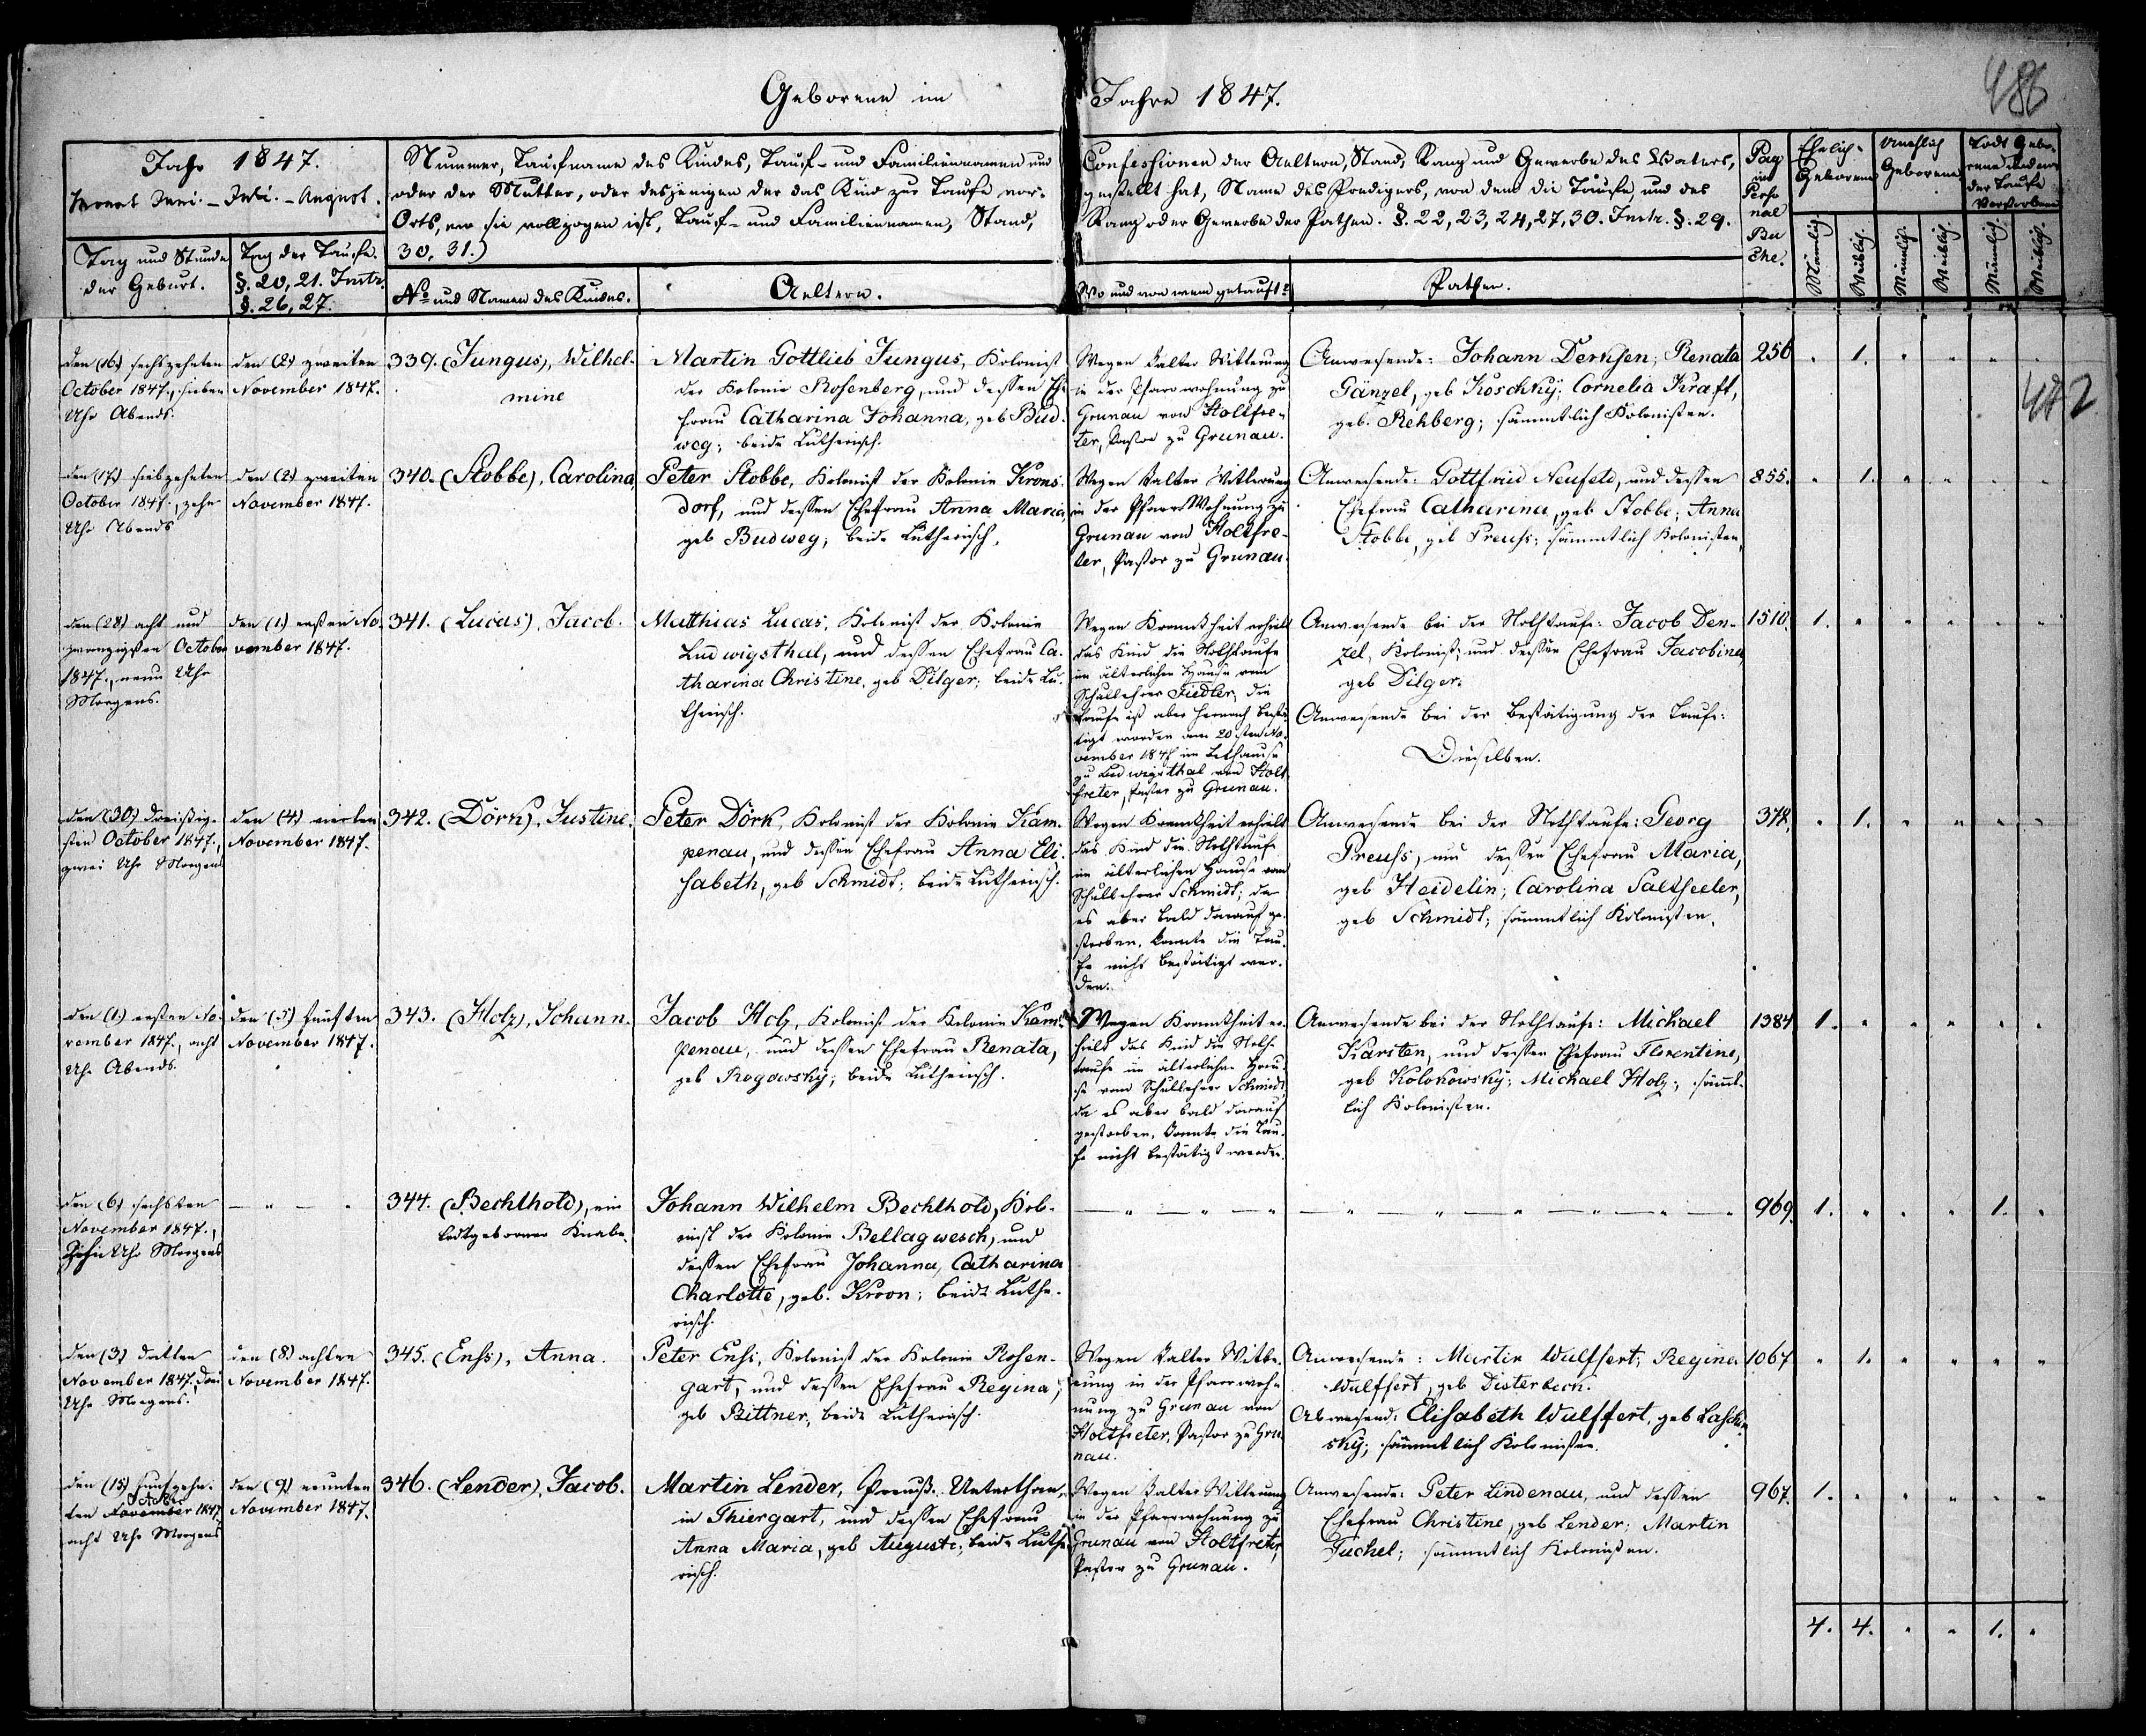 486
Geborene im Jahre 1847.
Jahr 1847.
Monat Juni. - Juli. - August.
Tag und Stunde der Geburt.
Tag der Taufe. §. 20, 21. Instr. §. 26, 27.
Nummer, Taufname des Kindes, Tauf- und Familiennamen und
oder der Mutter, oder desjenigen der das Kind zur Taufe vor-
Orts, wo sie vollzogen ist, Tauf- und Familiennamen, Stand,
30, 31.)
No und Namen des Kindes.
Aeltern.
Confessionen der Aeltern, Stand, Rang und Gewerbe des Vaters,
gestellt hat, Name des Predigers, von dem die Taufe, und des
Rang oder Gewerbe der Pathen. §. 22, 23, 24, 27, 30. Instr. §. 29.
Wo und von wem getauft?
Pathen.
Pag im Perso nal Bu che.
Ehelich Geborene
Unehlich Geborene
Todt Gebo- rene und vor der Taufe Verstorbene
Männlich.
Weiblich.
Männlich.
Weiblich.
Männlich.
Weiblich.
den (16.) sechszehnten
October 1847., sieben
Uhr Abends.
den (2.) zweiten
November 1847.
339. (Jungus), Wilhel-
mine
Martin Gottlieb Jungus, Kolonist
der Kolonie Rosenberg, und dessen Ehe
frau Catharina Johanna, geb Bud-
weg; beide Lutherisch.
Wegen kalter Witterung
in der Pfarrwohnung zu
Grunau von Holtfre-
ter, Pastor zu Grunau.
Anwesende: Johann Derksen; Renata
Gänzel, geb Koschky; Cornelia Kraft,
geb. Rehberg; sämmtlich Kolonisten.
256 " 1. " " " "
482
den (17.) siebzehnten
October 1847., zehn
Uhr Abends
den (2.) zweiten
November 1847.
340. (Stobbe), Carolina,
Peter Stobbe, Kolonist der Kolonie Krons-
dorf, und dessen Ehefrau Anna Maria,
geb Budweg; beide Lutherisch.
Wegen kalter Witterung
in der Pfarr Wohnung zu
Grunau von Holtfre-
ter, Pastor zu Grunau.
Anwesende: Gottfried Neufeld, und dessen
Ehefrau Catharina, geb Stobbe; Anna
Stobbe, geb Preuss; sämmtlich Kolonisten,
855. " 1. " " " "
den (28.) acht und
zwanzigsten October
1847., neun Uhr
Morgens.
den (1.) ersten No-
vember 1847.
341. (Lucas), Jacob.
Matthias Lucas, Kolonist der Kolonie
Ludwigsthal, und dessen Ehefrau Ca-
tharina Christine, geb Dilger; beide Lu-
therisch.
Wegen Krankheit erhielt
das Kind die Nothtaufe
im älterlichen Hause vom
Schullehrer Fiedler; die
Taufe ist aber hernach bestä-
tigt worden am 20sten No-
vember 1847 im Bethause
zu Ludwigsthal von Holt
freter, Pastor zu Grunau.
Anwesende bei der Nothtaufe: Jacob Den-
zel, Kolonist, und dessen Ehefrau Jacobina,
geb Dilger.
Anwesende bei der Bestätigung der Taufe:
Dieselben.
1510. 1. " " " " "
den (30.) dreißig-
sten October 1847.,
zwei Uhr Morgens
den (4.) vierten
November 1847.
342. (Dörk), Justine.
Peter Dörk, Kolonist der Kolonie Kam-
penau, und dessen Ehefrau Anna Eli-
sabeth, geb Schmidt; beide Lutherisch.
Wegen Krankheit erhielt
das Kind die Nothtaufe
im älterlichen Hause vom
Schullehrer Schmidt; da
es aber bald darauf ge-
storben, konnte die Tau-
fe nicht bestätigt wer-
den.
Anwesende bei der Nothtaufe: Georg
Preuss, und dessen Ehefrau Maria,
geb Heidelin; Carolina Saltseeler,
geb Schmidt; sämmtlich Kolonisten.
378. " 1. " " " "
den (1.) ersten No-
vember 1847., acht
Uhr Abends.
den (5.) fünften
November 1847.
343. (Holz), Johann.
Jacob Holz, Kolonist der Kolonie Kam-
penau, und dessen Ehefrau Renata,
geb Rogowsky; beide Lutherisch.
Wegen Krankheit er-
hielt das Kind die Noth
taufe im älterlichen Hau-
se vom Schullehrer Schmidt
da es aber bald darauf
gestorben, konnte die Tau-
fe nicht bestätigt werden.
Anwesende bei der Nothtaufe: Michael
Karsten, und dessen Ehefrau Florentine,
geb Kolokowsky; Michael Holz; sämmt-
lich Kolonisten.
1384 1. " " " " "
den (6.) sechsten
November 1847.,
zehn Uhr Morgens
— " — "
344. (Bechthold), ein
todtgeborner Knabe.
Johann Wilhelm Bechthold, Kolo-
nist der Kolonie Bellagwesch, und
dessen Ehefrau Johanna, Catharina
Charlotte, geb. Kroon; beide Luthe-
risch.
— " — " — " — " — " — " — " — "
969. 1. " " " 1. "
den (3.) dritten
November 1847., drei
Uhr Morgens.
den (8.) achten
November 1847.
345. (Enss), Anna.
Peter Enss, Kolonist der Kolonie Rosen-
gart, und dessen Ehefrau Regina,
geb Bittner, beide Lutherisch.
Wegen kalter Witte-
rung in der Pfarrwoh-
nung zu Grunau von
Holtfreter, Pastor zu Gru-
nau.
Anwesende: Martin Wulffert; Regina
Wulffert, geb Disterbeck.
Abwesend: Elisabeth Wulffert, geb Laschin
sky; sämmtlich Kolonisten.
1067 " 1. " " " "
den (15.) fünfzehn-
ten November October 1847.
acht Uhr Morgens
den (9.) neunten
November 1847.
346. (Lender), Jacob.
Martin Lender, Preuß. Unterthan,
in Thiergart, und dessen Ehefrau
Anna Maria, geb Auguste; beide Luthe-
risch.
Wegen kalter Witterung
in der Pfarrwohnung zu
Grunau von Holtfreter,
Pastor zu Grunau.
Anwesende: Peter Lindenau, und dessen
Ehefrau Christine, geb Lender; Martin
Tuchel; sämmtlich Kolonisten.
967. 1. " " " " "
4. 4. " " 1. "